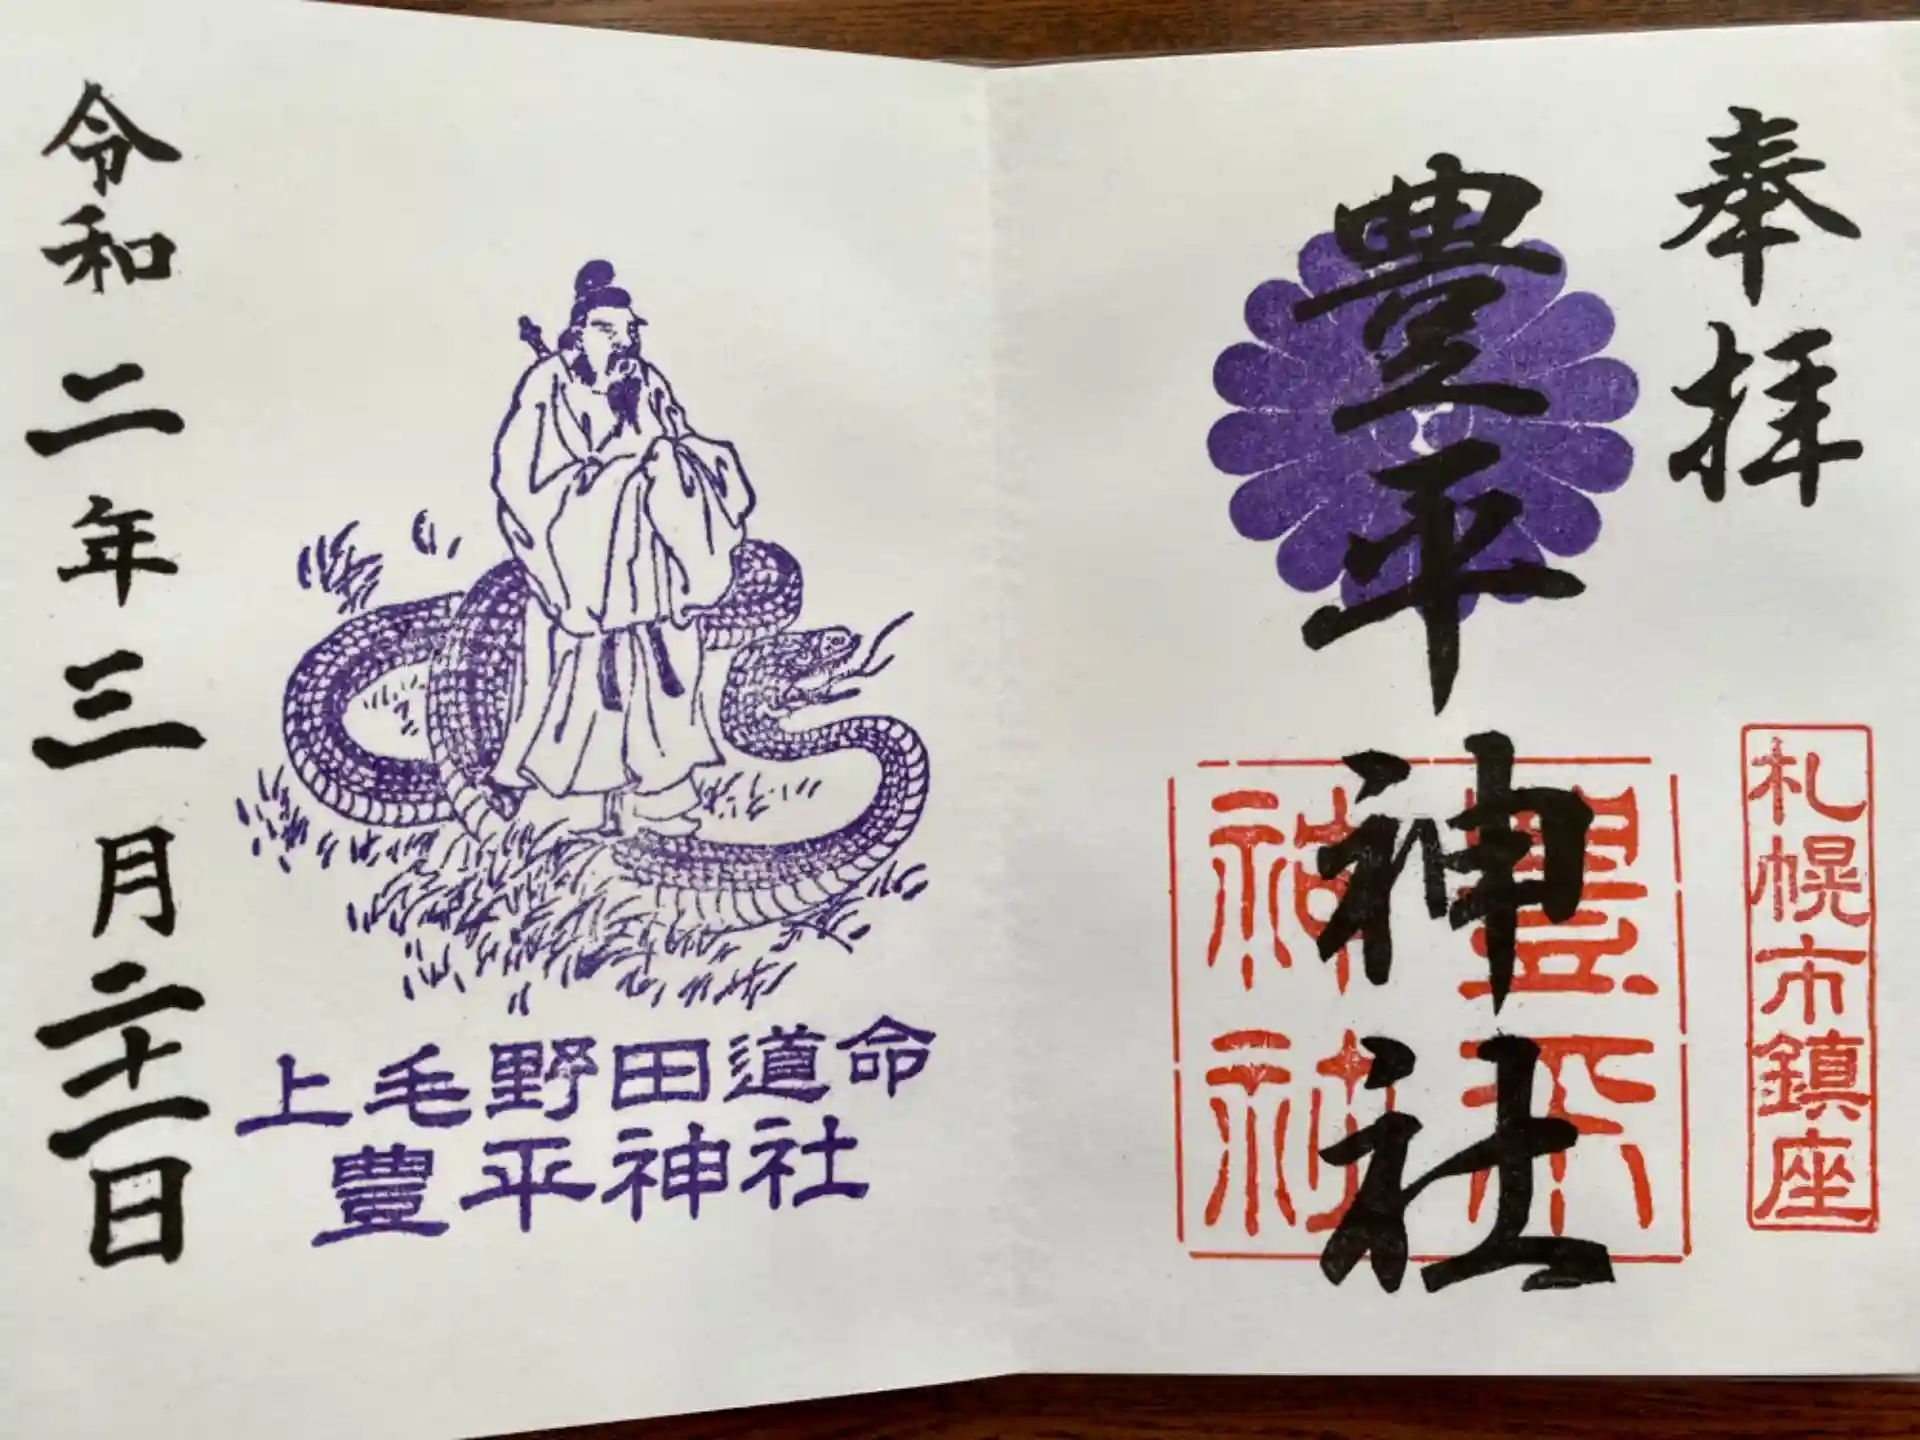 奉拝
豊平神社
豊平神社
札幌市鎮座
上毛野田道命
豊平神社
令和二年三月二十一日